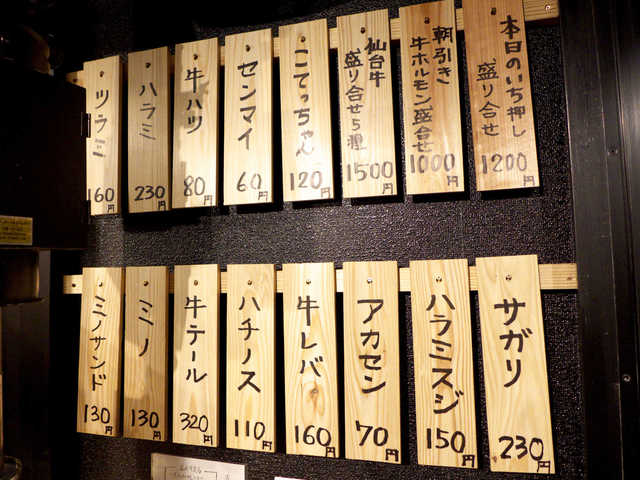 本日のいち押し
盛り合せ
1200円
朝引き
牛ホルモン盛合せ
1000円
仙台牛
盛り合せ5種
1500円
こてっちゃん
120円
センマイ
60円
牛ハツ
80円
ハラミ
230円
ツゥー
160円
サガリ
230円
ハラミスジ
150円
アカセン
70円
牛レバ
160円
ハチノス
110円
牛テール
320円
ミノ
130円
ミノサンド
130円